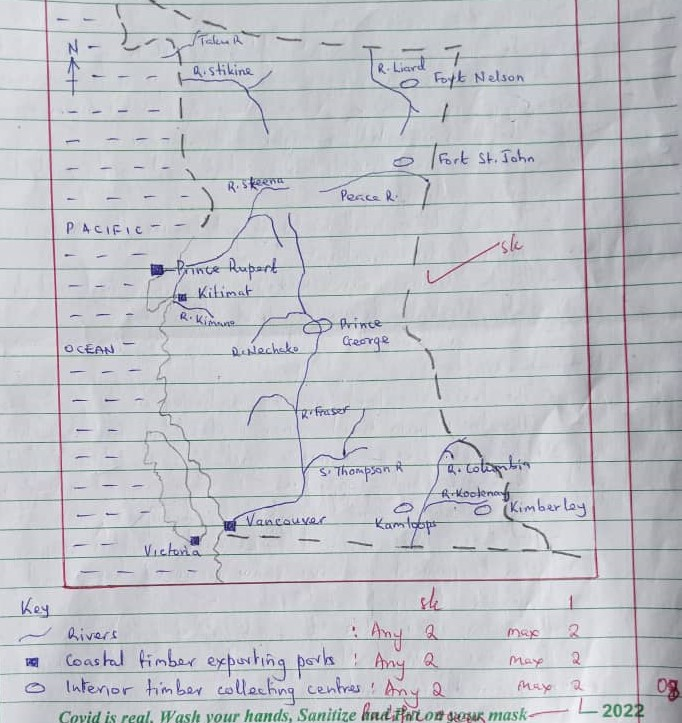 Taku R
N
R. Stikine
R. Liard
Fort Nelson
Fort St. John
R. Skeena
Peace R.
PACIFIC
sk
Prince Rupert
Kitimat
R. Kimano
Prince George
R. Nechako
OCEAN
R. Fraser
R. Columbia
S. Thompson R
R. Kootenay
Kimberley
Vancouver
Kamloops
Victoria
Key
sk 1
Rivers : Any 2 max 2
Coastal timber exporting ports : Any 2 max 2
Interior timber collecting centres : Any 2 max 2
08
Covid is real. Wash your hands, Sanitize and Put on your mask 2022